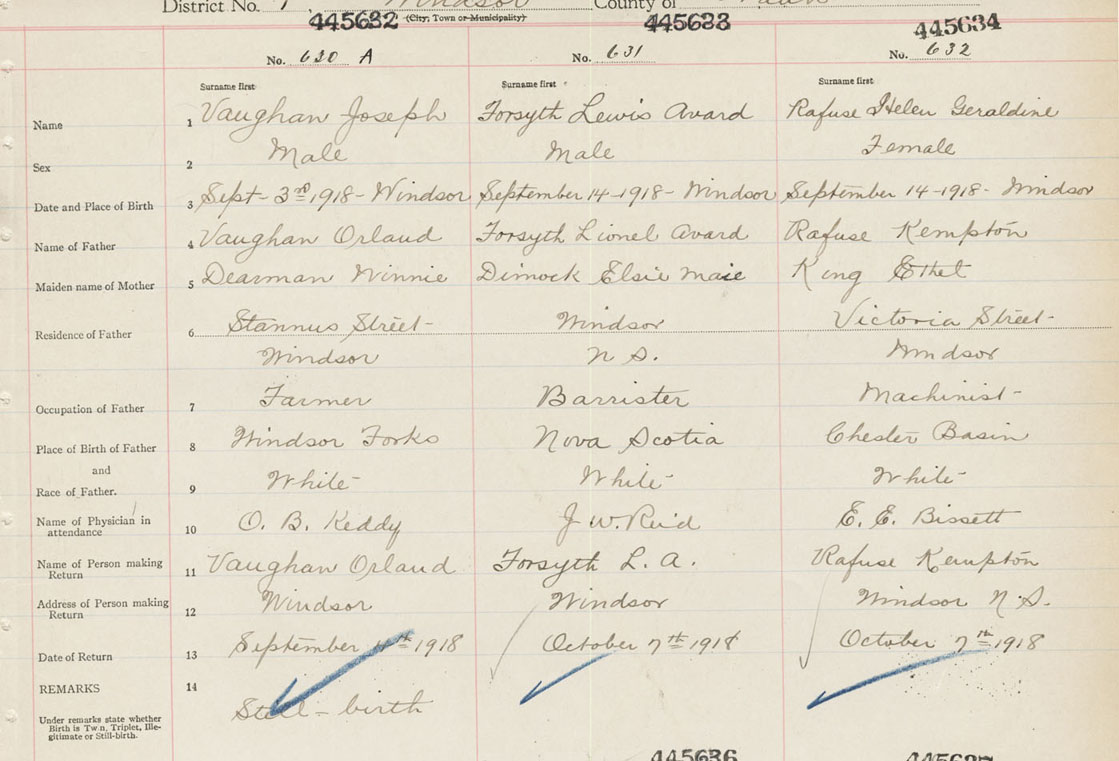 District No. Windsor County of
445632 (City, Town or Municipality) 445633 445634
No. 630 A No. 631 No. 632
Surname first Surname first Surname first
Name 1 Vaughan Joseph Forsyth Lewis Avard Rafuse Helen Geraldine
Sex 2 Male Male Female
Date and Place of Birth 3 Sept- 3rd 1918 - Windsor September 14-1918 - Windsor September 14-1918 - Windsor
Name of Father 4 Vaughan Orland Forsyth Lionel Avard Rafuse Kempton
Maiden name of Mother 5 Dearman Winnie Dimock Elsie Maie King Ethel
Residence of Father 6 Stannus Street- Windsor Victoria Street-
Windsor N S. Windsor
Occupation of Father 7 Farmer Barrister Machinist-
Place of Birth of Father 8 Windsor Forks Nova Scotia Chester Basin
and
Race of Father. 9 White- White- White-
Name of Physician in attendance 10 O. B. Keddy J W. Reid E. E. Bissett
Name of Person making Return 11 Vaughan Orland Forsyth L. A. Rafuse Kempton
Address of Person making Return 12 Windsor Windsor Windsor N.S.
Date of Return 13 September 1918 October 7th 1918 October 7th 1918
REMARKS 14
Still-birth
Under remarks state whether
Birth is Twin, Triplet, Ille-
gitimate or Still-birth.
445636 445637